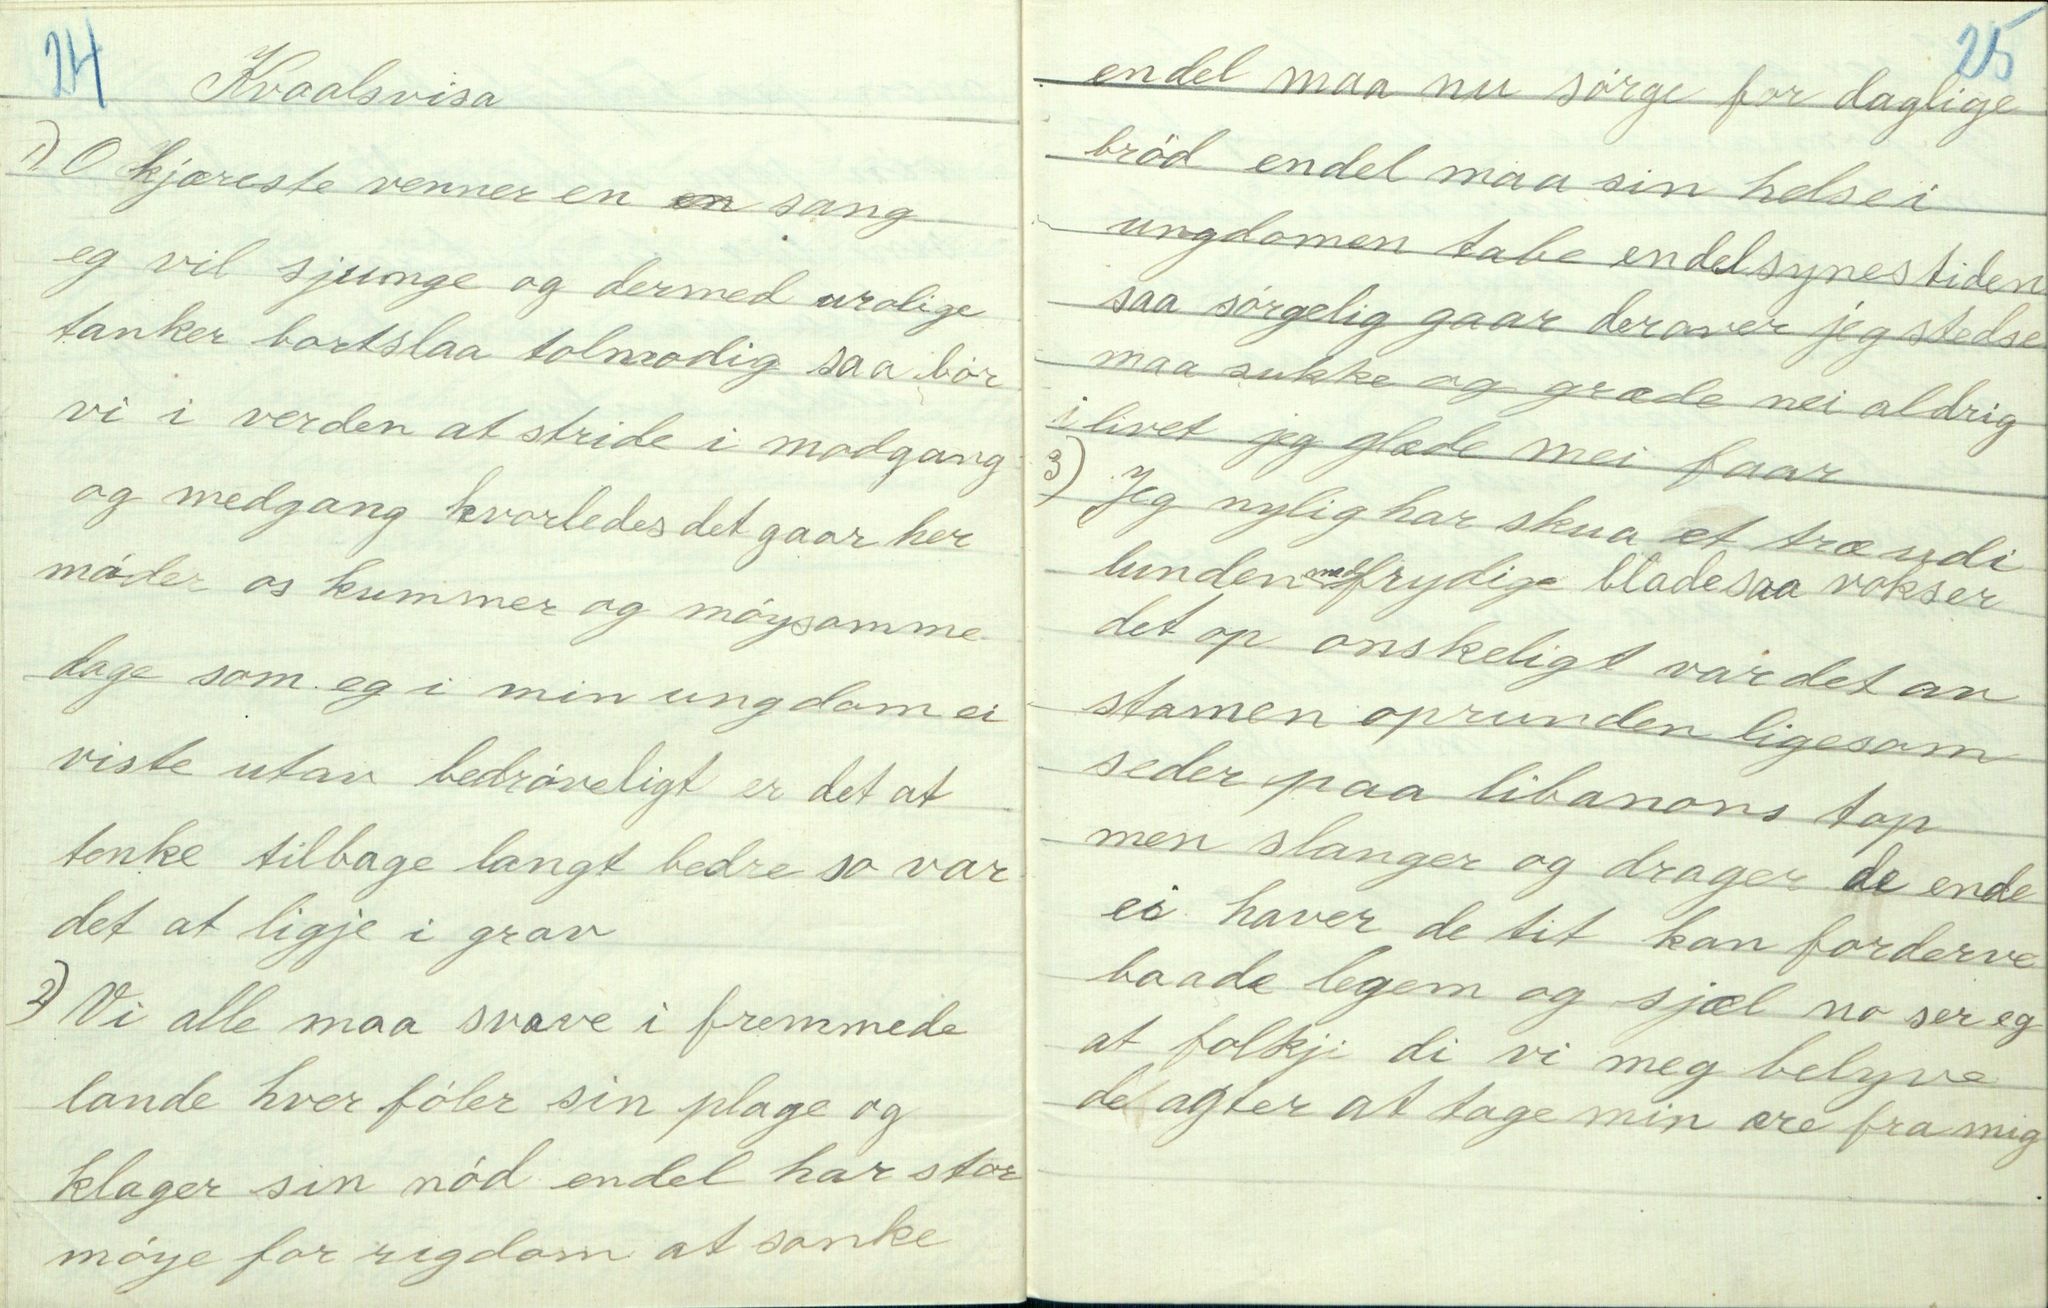 24
Kvaalsvisa
1) O kjæreste venner en en sang
eg vil sjunge og dermed urolige
tanker bortslaa tolmodig saa bör
vi i verden at stride i modgang
og medgang kvorledes det gaar her
möder os kummer og möysomme
dage som eg i min ungdom ei
viste utav bedröveligt er det at
tenke tilbage langt bedre so var
det at ligje i grav
2) Vi alle maa svave i fremmede
lande hver föler sin plage og
klager sin nöd endel har stor
möye for rigdom at sanke
25
endel maa nu sörge for daglige
bröd endel maa sin helse i
ungdomen tabe endel synes tiden
saa sörgelig gaar derover jeg stedse
maa sukke og græde nei aldrig
i livet jeg glæde mei faar
3) Jeg nylig har skua et træ udi
lunden med frydige blade saa vokser
det op onskeligt var det av
stamen oprunden ligesom
seder paa libanons top
men slanger og drager de ende
ei haver de tit kan forderve
baade legem og sjæl no ser eg
at folkji di vi meg belyve
de agter at tage min ære fra mig